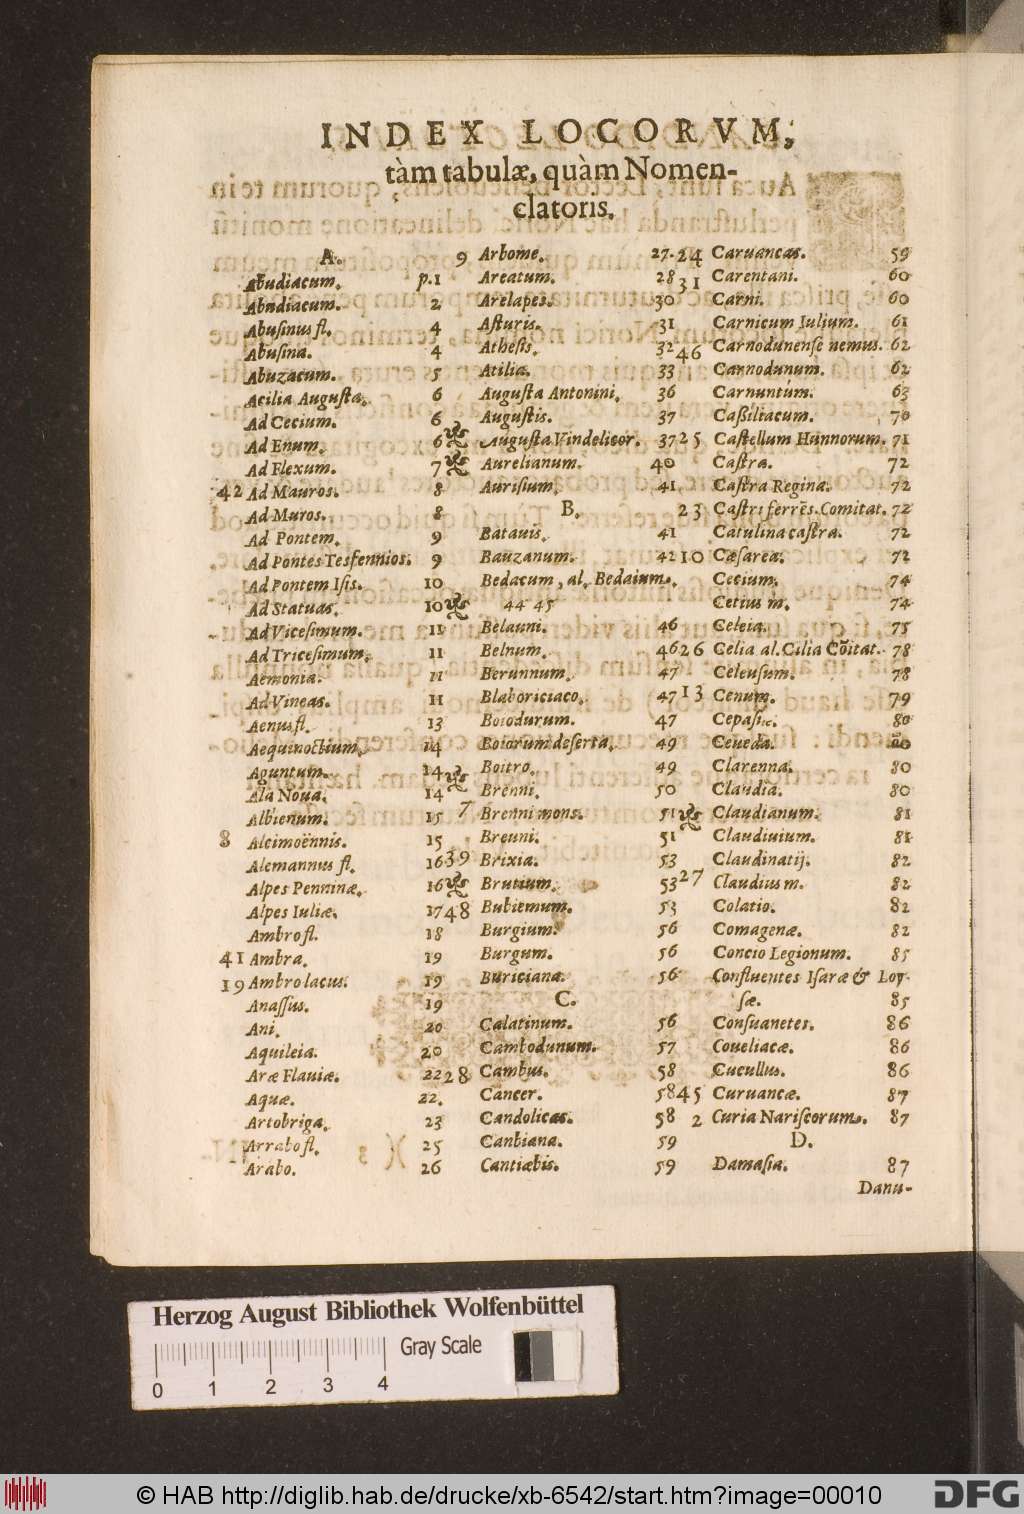 INDEX LOCORVM,
tàm tabulæ, quàm Nomen-
clatoris.
A.
Abudiacum. p.1
Abndiacum. 2
Abusinus fl. 4
Abusina. 4
Abuzacum. 5
Acilia Augusta. 6
Ad Cecium. 6
Ad Enum. 6
Ad Flexum. 7
42 Ad Mauros. 8
Ad Muros. 8
Ad Pontem. 9
Ad Pontes Tesfennios. 9
Ad Pontem Isis. 10
Ad Statuas. 10
Ad Vicesimum. 11
Ad Tricesimum. 11
Aemonia. 11
Ad Vineas. 11
Aenus fl. 13
Aequinoctium. 14
Aguntum. 14
Ala Noua. 14
Albienum. 15
8 Alcimoënnis. 15
Alemannus fl. 16
Alpes Penninæ. 16
Alpes Iuliæ. 17
Ambro fl. 18
41 Ambra. 19
19 Ambro lacus. 19
Anassus. 19
Ani. 20
Aquileia. 20
Aræ Flauiæ. 22
Aquæ. 22.
Artobriga. 23
Arrabo fl. 25
Arabo. 26
9 Arbome. 27.
Arcatum. 28
Arelapes. 30
Asturis. 31
Athesis. 32
Atilia. 33
Augusta Antonini. 36
Augustis. 37
Augusta Vindelicor. 37
Aurelianum. 40
Aurisium. 41
B.
Batauis. 41
Bauzanum. 42
Bedacum, al. Bedaium.
44 45
Belauni. 46
Belnum. 46
Berunnum. 47
Blaboriciaco. 47
Boiodurum. 47
Boiorum deserta. 49
Boitro. 49
Brenni. 50
7 Brenni mons. 51
Breuni. 51
39 Brixia. 53
Brutium. 53
48 Bubiemum. 53
Burgium. 56
Burgum. 56
Buriciana. 56
C.
Calatinum. 56
Cambodunum. 57
28 Cambus. 58
Cancer. 58
Candolicas. 58
Canbiana. 59
Cantiæbis. 59
24 Caruancas. 59
31 Carentani. 60
Carni. 60
Carnicum Iulium. 61
46 Carnodunense nemus. 62
Carnodunum. 62
Carnuntúm. 63
Cassiliacum. 70
25 Castellum Hunnorum. 71
Castra. 72
Castra Regina. 72
23 Castri ferrẽs. Comitat. 72
Catulina castra. 72
10 Cæsarea. 72
Cecium. 74
Cetius m. 74
Celeia. 75
26 Celia al. Cilia Cõitat. 78
Celeusum. 78
13 Cenum. 79
Cepasiæ. 80
Ceueda. 80
Clarenna. 80
Claudia. 80
Claudianum. 81
Claudiuium. 81
Claudinatij. 82
27 Claudius m. 82
Colatio. 82
Comagenæ. 82
Concio Legionum. 85
Confluentes Isaræ & Loy-
sæ. 85
Consuanetes. 86
Coueliacæ. 86
Cucullus. 86
45 Curuancæ. 87
2 Curia Nariscorum. 87
D.
Damasia. 87
Danu-
Herzog August Bibliothek Wolfenbüttel
Gray Scale
0 1 2 3 4
© HAB http://diglib.hab.de/drucke/xb-6542/start.htm?image=00010
DFG